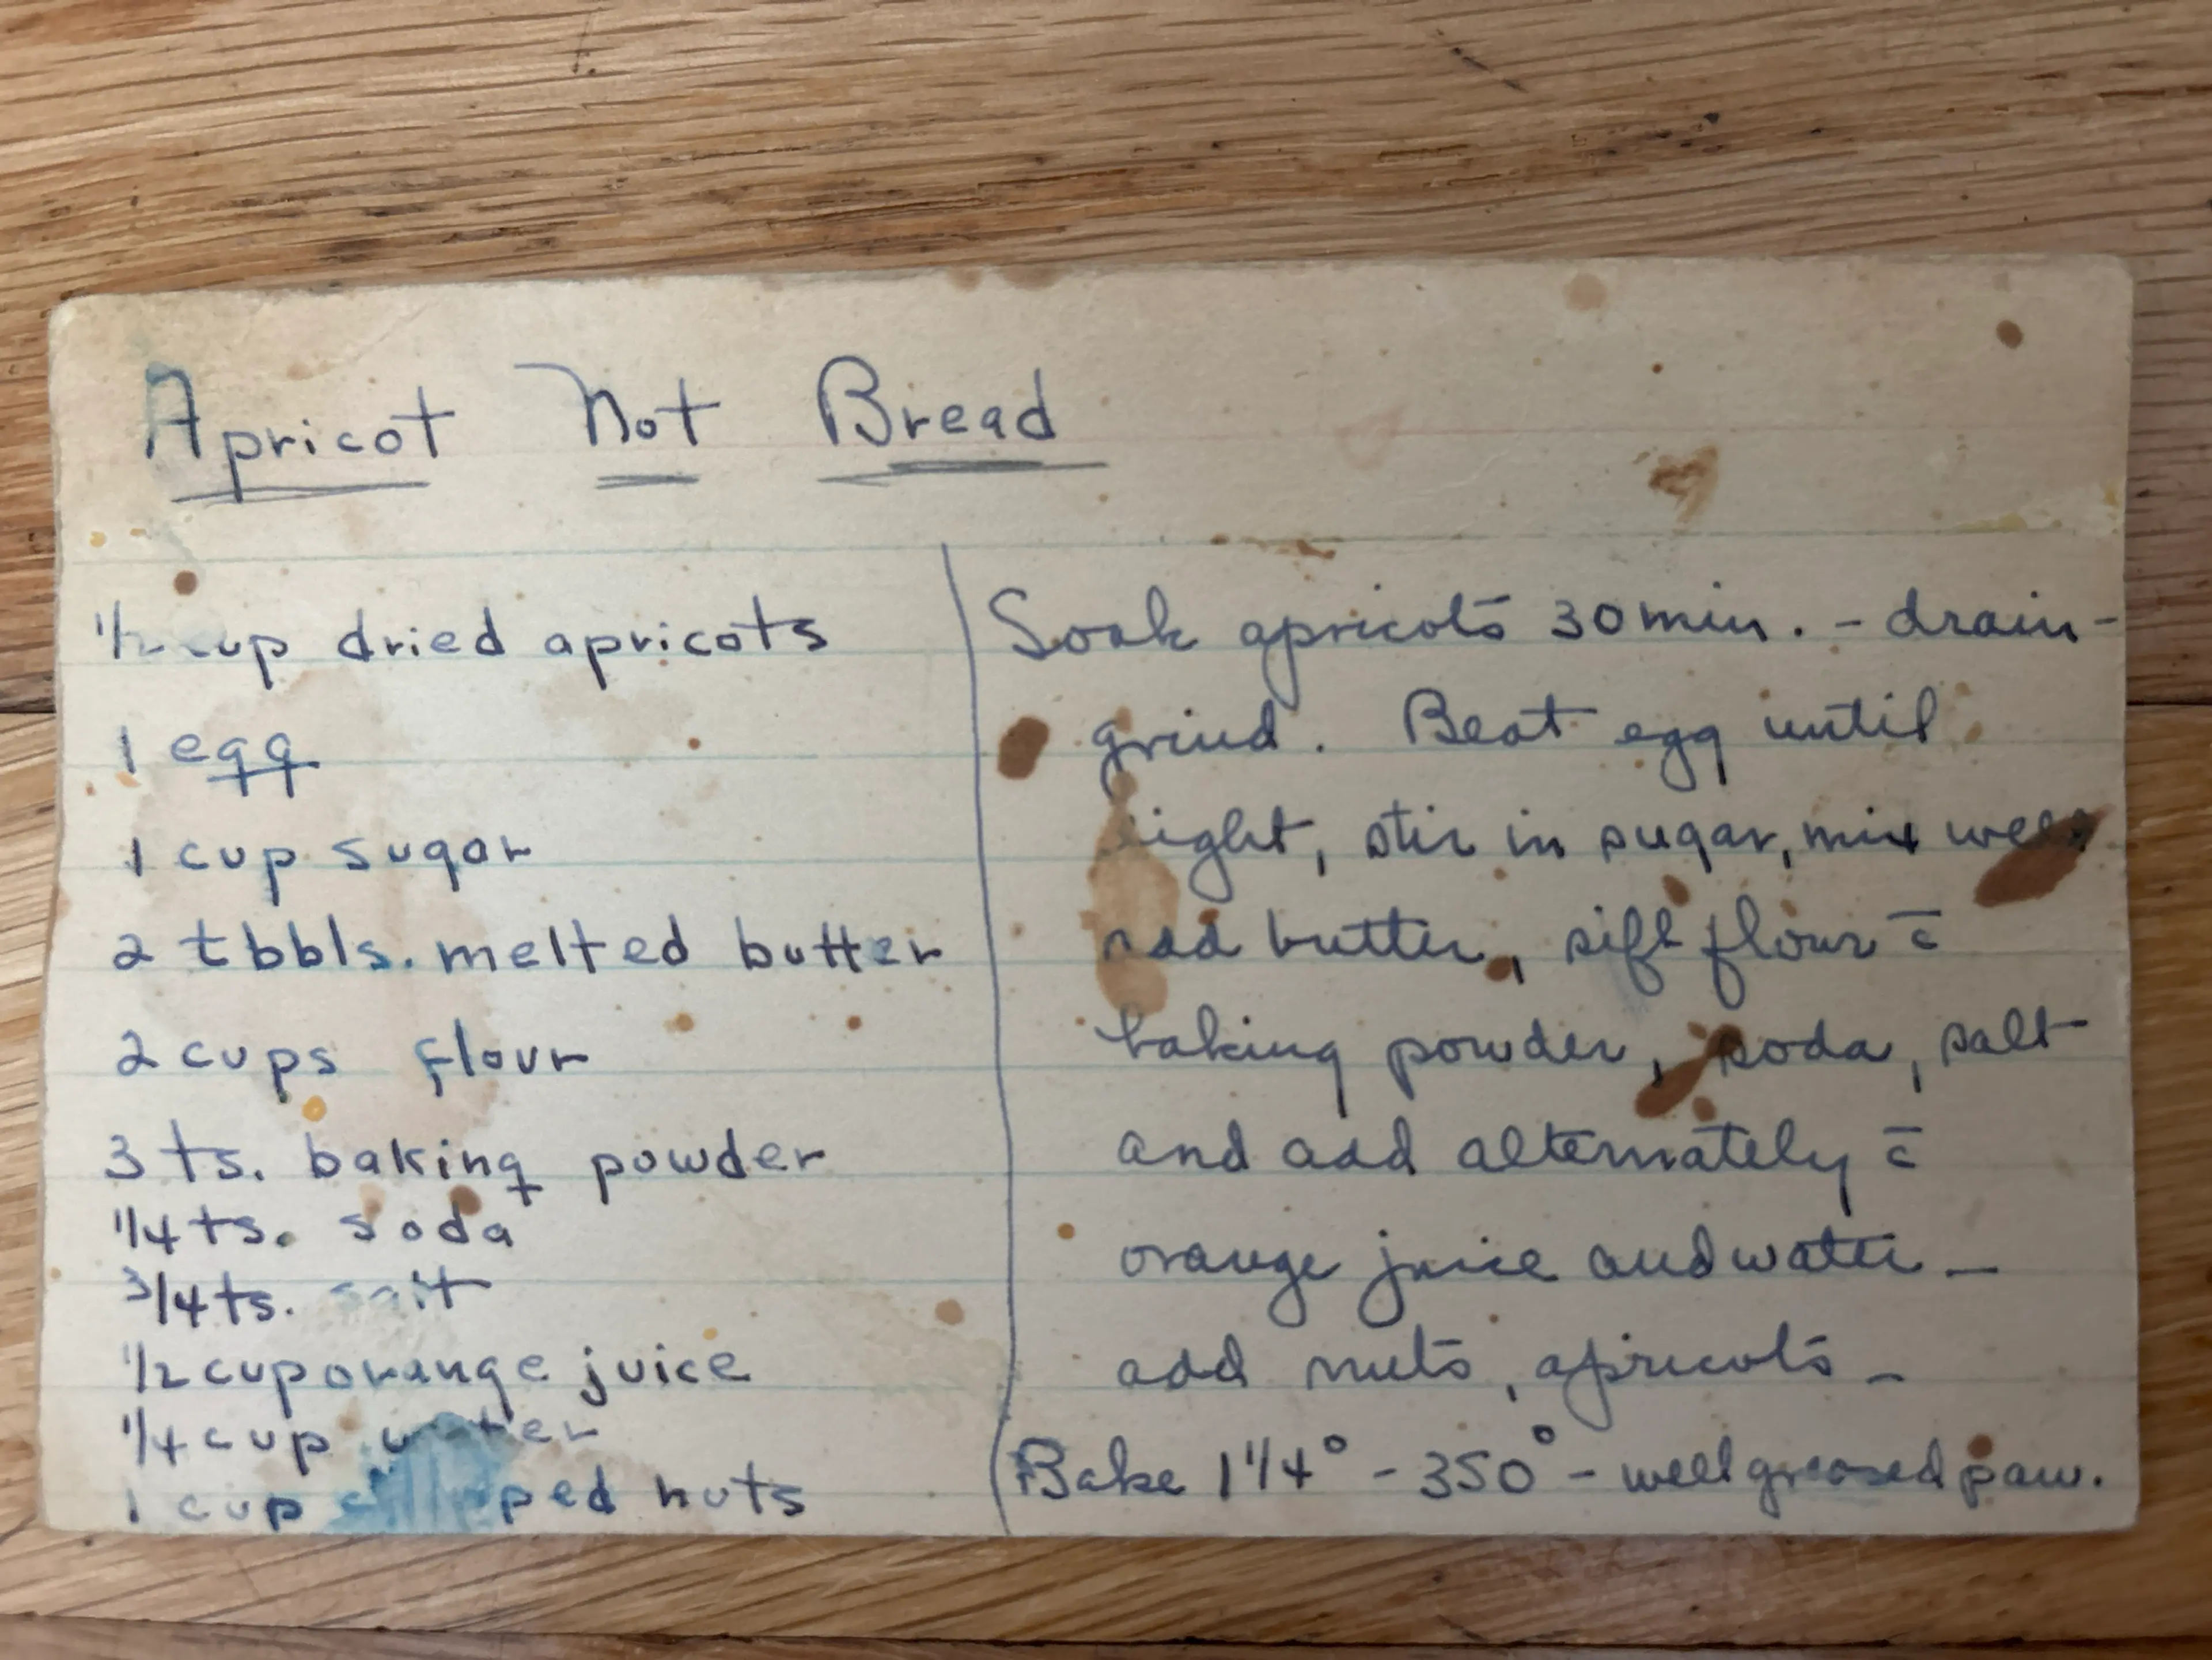 Apricot Nut Bread
1/2 cup dried apricots
1 egg
1 cup sugar
2 tbbls. melted butter
2 cups flour
3 ts. baking powder
1/4 ts. soda
3/4 ts. salt
1/2 cup orange juice
1/4 cup water
1 cup chopped nuts
Soak apricots 30 min. - drain -
grind. Beat egg until
light, stir in sugar, mix well
add butter, sift flour c̄
baking powder, soda, salt
and add alternately c̄
orange juice and water -
add nuts, apricots -
Bake 1 1/4° - 350° - well greased pan.